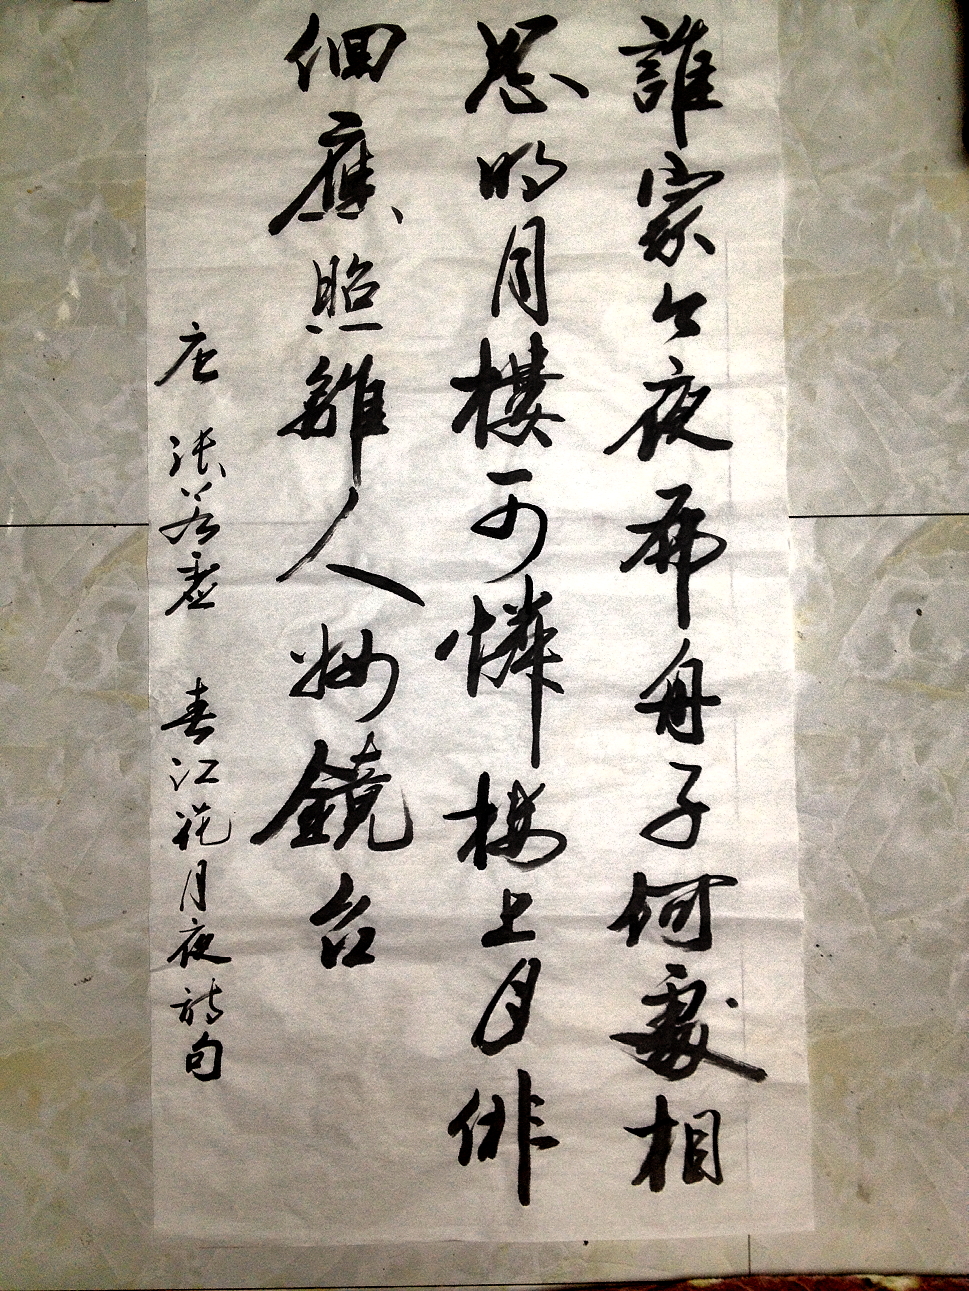 誰家今夜扁舟子何處相
思明月樓可憐樓上月俳
佪應照離人妝鏡台
唐 張若虛 春江花月夜詩句